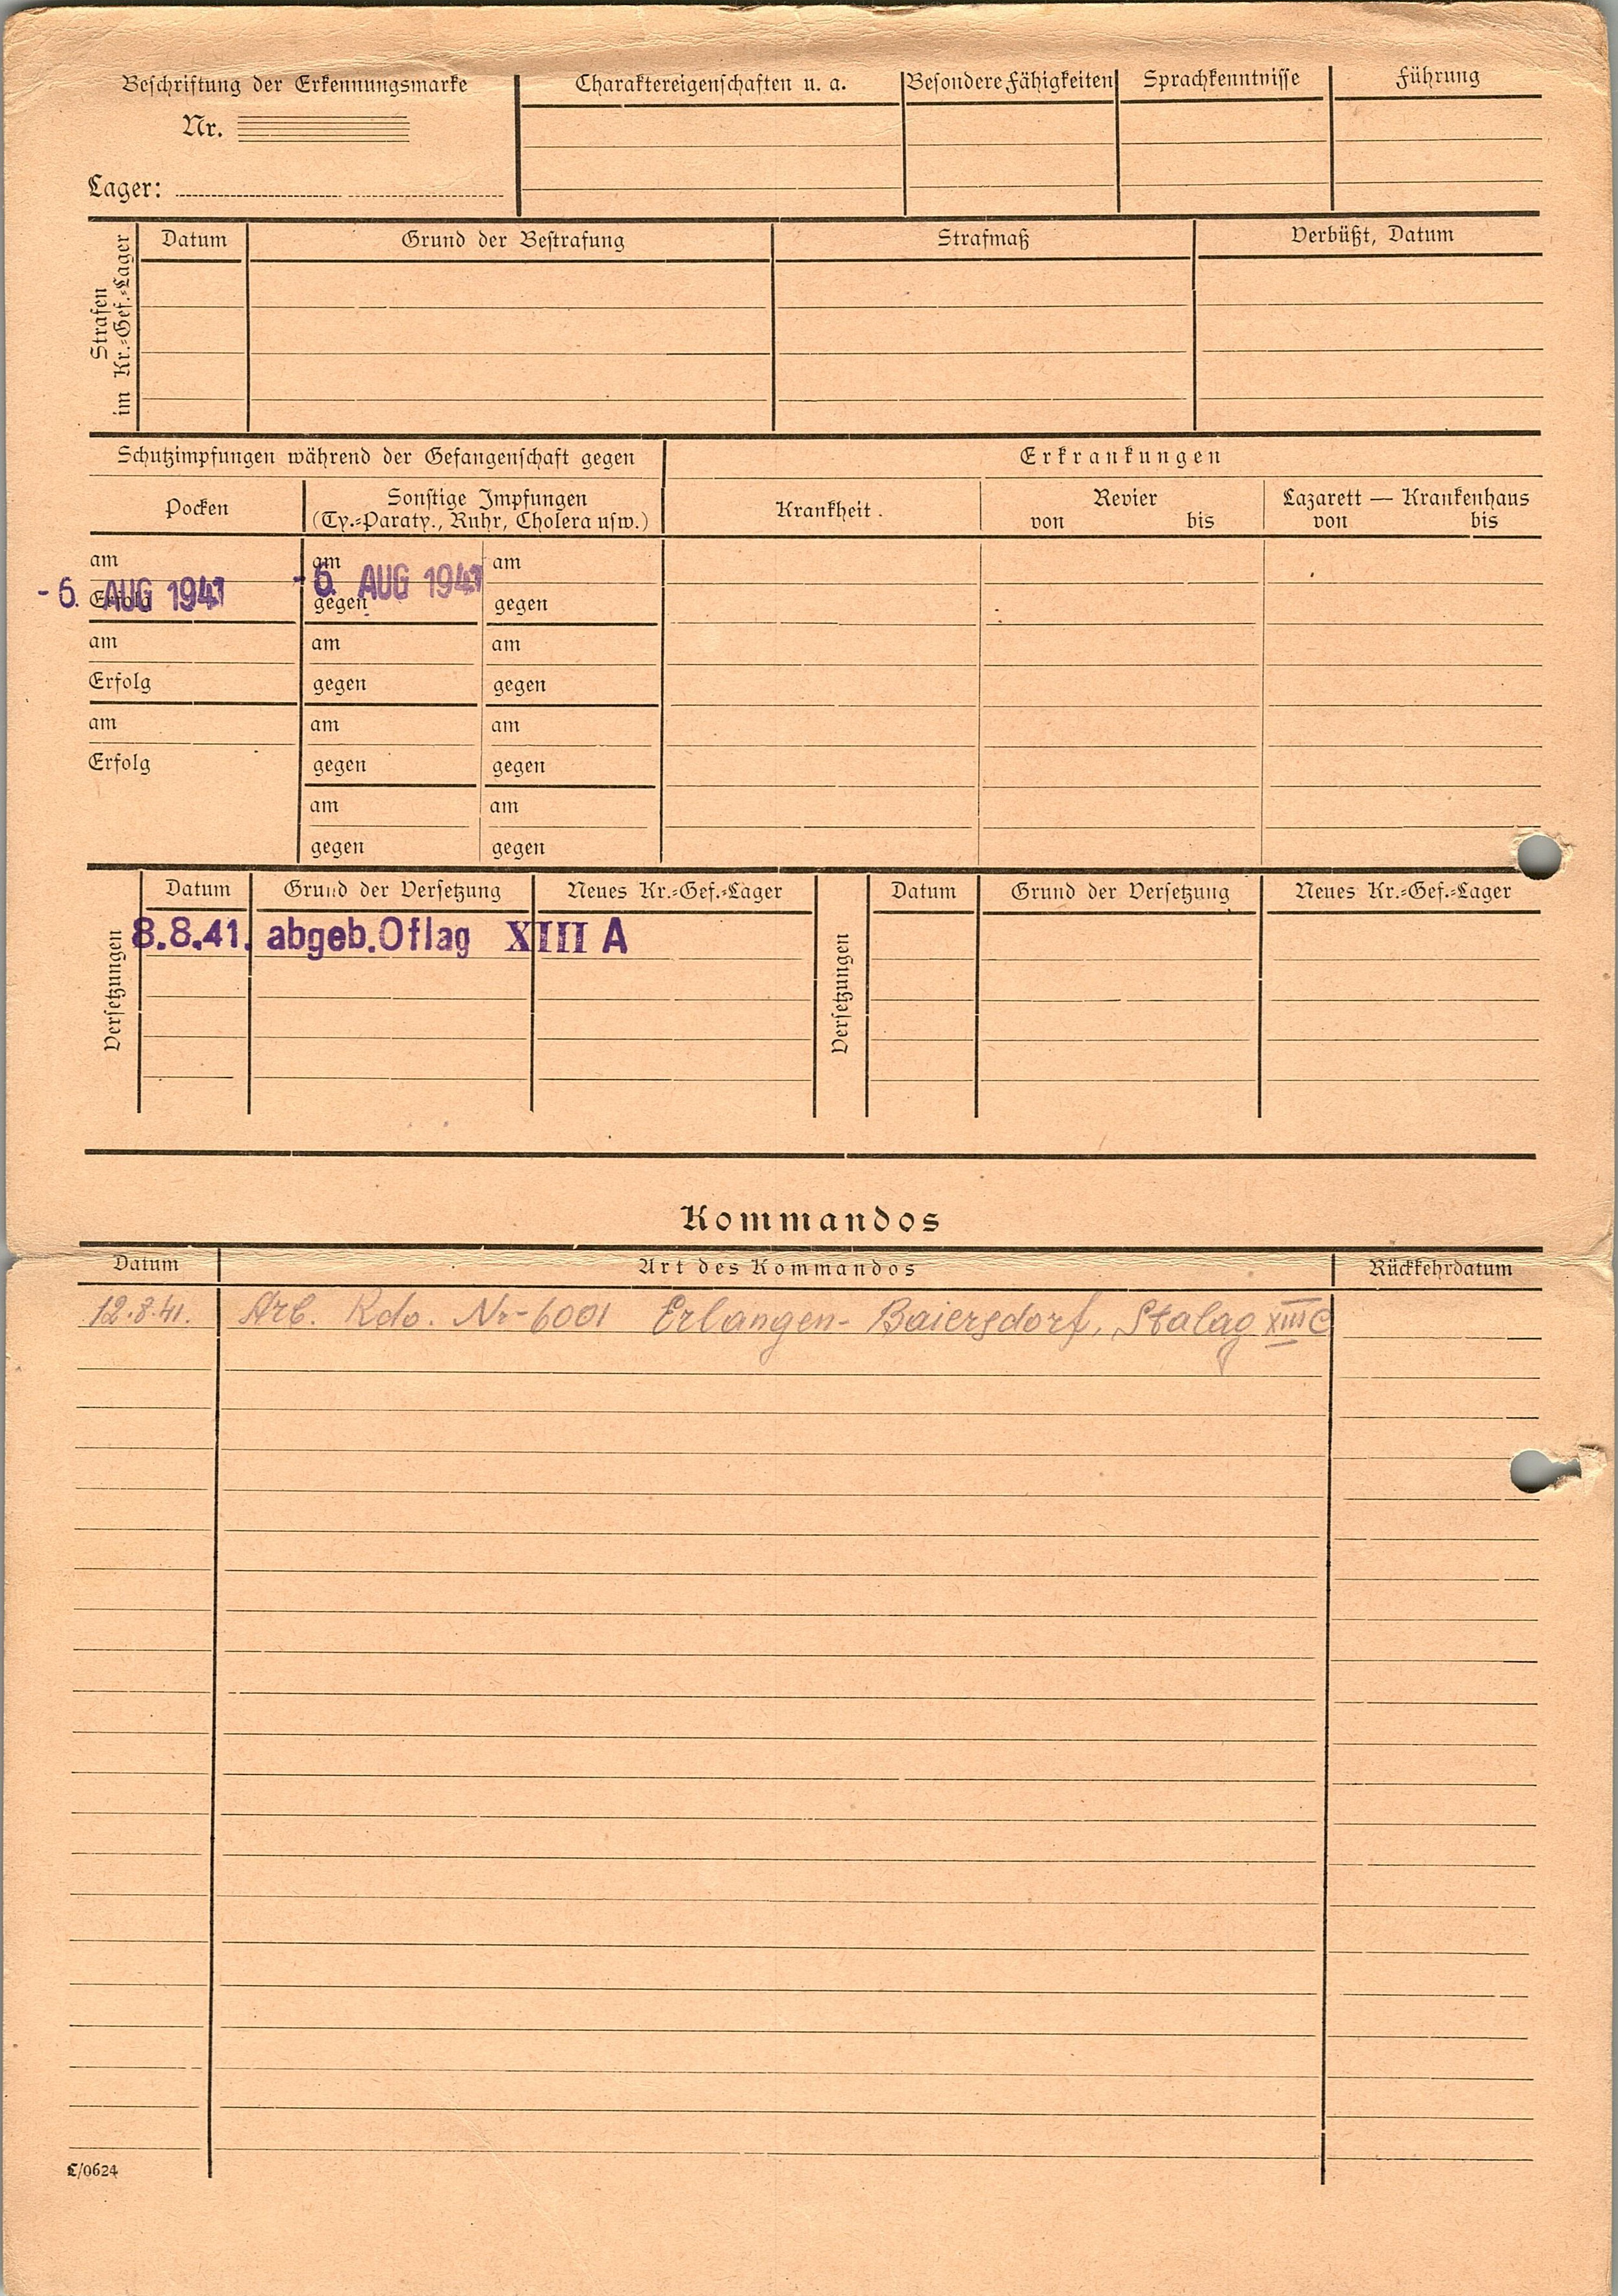 Beschriftung der Erkennungsmarke
Nr.
Lager:
Charaktereigenschaften u. a.
Besondere Fähigkeiten
Sprachkenntnisse
Führung
Strafen
im Kr.-Gef.-Lager
Datum
Grund der Bestrafung
Strafmaß
Verbüßt, Datum
Schutzimpfungen während der Gefangenschaft gegen
Erkrankungen
Pocken
Sonstige Impfungen
(Ty.-Paraty., Ruhr, Cholera usw.)
Krankheit.
Revier
von bis
Lazarett — Krankenhaus
von bis
am am am
- 6. AUG 1941 - 6. AUG 1941
Erfolg gegen gegen
am am am
Erfolg gegen gegen
am am am
Erfolg gegen gegen
am am
gegen gegen
Versetzungen
Datum Grund der Versetzung Neues Kr.-Gef.-Lager
8.8.41. abgeb. Oflag XIII A
Versetzungen
Datum Grund der Versetzung Neues Kr.-Gef.-Lager
Kommandos
Datum Art des Kommandos Rückkehrdatum
12.8.41. Arb. Kdo. Nr-6001 Erlangen-Baiersdorf, Stalag XIII C
C/0624